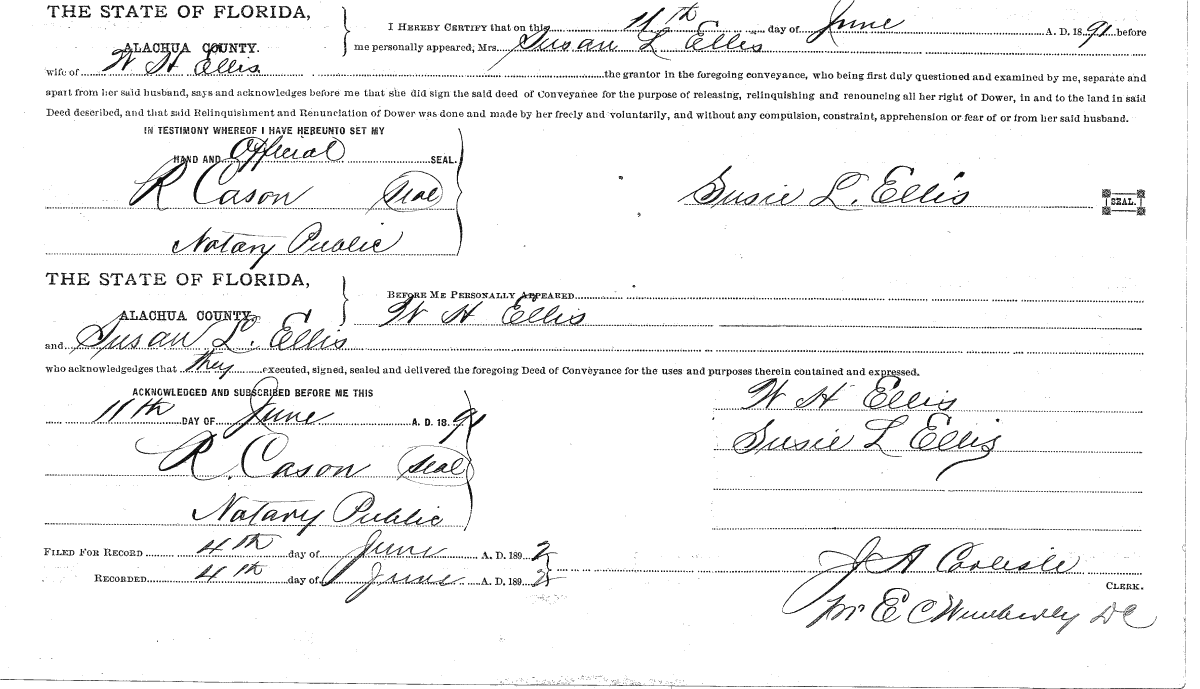 THE STATE OF FLORIDA,
ALACHUA COUNTY.
I HEREBY CERTIFY that on this 11th day of June A. D. 1891 before
me personally appeared, Mrs. Susan L Ellis
wife of W H Ellis the grantor in the foregoing conveyance, who being first duly questioned and examined by me, separate and
apart from her said husband, says and acknowledges before me that she did sign the said deed of Conveyance for the purpose of releasing, relinquishing and renouncing all her right of Dower, in and to the land in said
Deed described, and that said Relinquishment and Renunciation of Dower was done and made by her freely and voluntarily, and without any compulsion, constraint, apprehension or fear of or from her said husband.
IN TESTIMONY WHEREOF I HAVE HEREUNTO SET MY
HAND AND Official SEAL.
R Cason Seal
Susie L. Ellis SEAL.
Notary Public
THE STATE OF FLORIDA,
ALACHUA COUNTY.
BEFORE ME PERSONALLY APPEARED
W H Ellis
and Susan L. Ellis
who acknowledgedges that they executed, signed, sealed and delivered the foregoing Deed of Conveyance for the uses and purposes therein contained and expressed.
ACKNOWLEDGED AND SUBSCRIBED BEFORE ME THIS
11th DAY OF June A. D. 1891
W H Ellis
Susie L Ellis
R. Cason Seal
Notary Public
FILED FOR RECORD 4th day of June A. D. 1892
RECORDED 4th day of June A. D. 1892
J A Carlisle
CLERK.
pr E C Wimberly DC